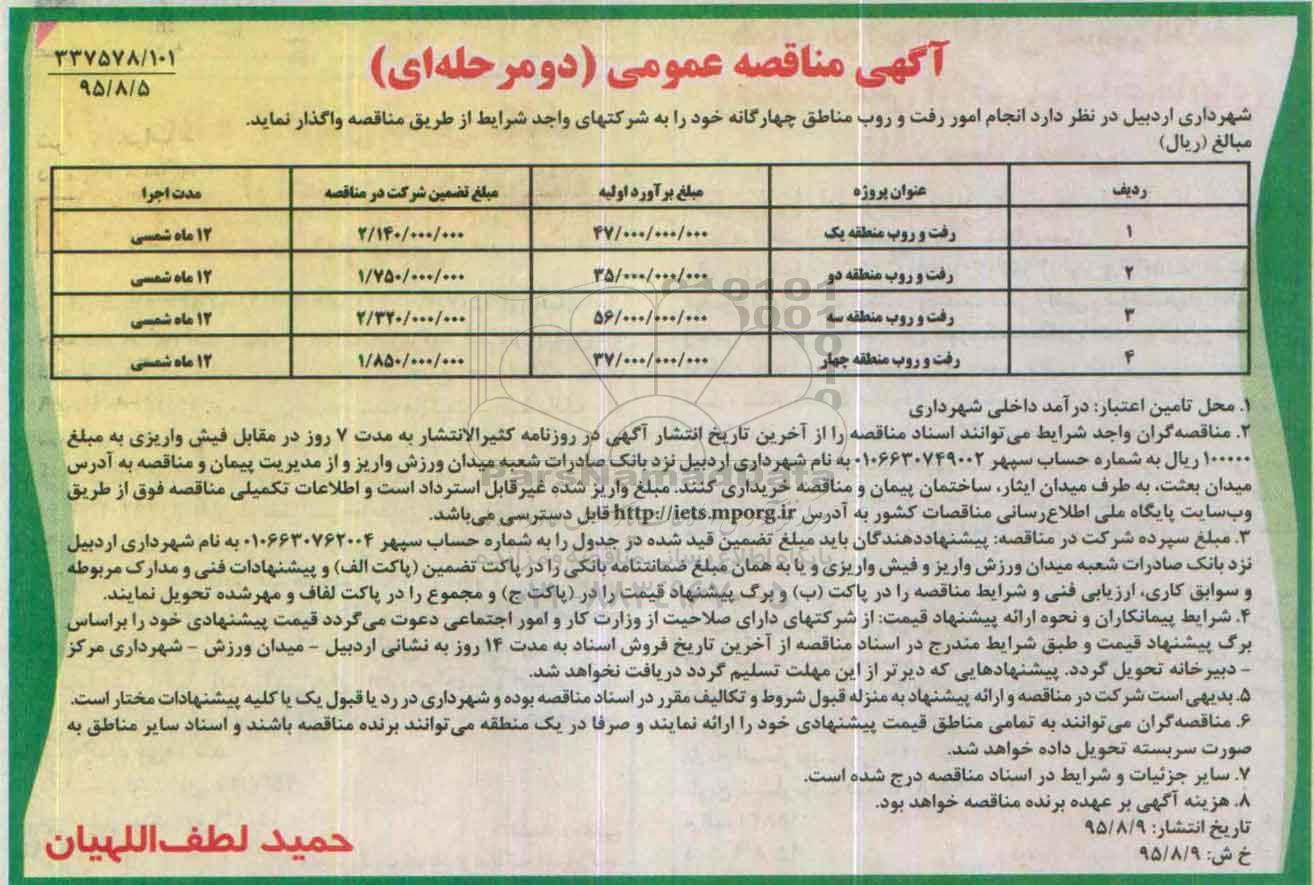 ۳۳۷۵۷۸/۱۰۱
۹۵/۸/۵
آگهی مناقصه عمومی (دومرحله‌ای)
شهرداری اردبیل در نظر دارد انجام امور رفت و روب مناطق چهارگانه خود را به شرکتهای واجد شرایط از طریق مناقصه واگذار نماید.
مبالغ (ریال)
ردیف عنوان پروژه مبلغ برآورد اولیه مبلغ تضمین شرکت در مناقصه مدت اجرا
۱ رفت و روب منطقه یک ۴۷/۰۰۰/۰۰۰/۰۰۰ ۲/۱۴۰/۰۰۰/۰۰۰ ۱۲ ماه شمسی
۲ رفت و روب منطقه دو ۳۵/۰۰۰/۰۰۰/۰۰۰ ۱/۷۵۰/۰۰۰/۰۰۰ ۱۲ ماه شمسی
۳ رفت و روب منطقه سه ۵۶/۰۰۰/۰۰۰/۰۰۰ ۲/۳۲۰/۰۰۰/۰۰۰ ۱۲ ماه شمسی
۴ رفت و روب منطقه چهار ۳۷/۰۰۰/۰۰۰/۰۰۰ ۱/۸۵۰/۰۰۰/۰۰۰ ۱۲ ماه شمسی
۱. محل تامین اعتبار: درآمد داخلی شهرداری
۲. مناقصه‌گران واجد شرایط می‌توانند اسناد مناقصه را از آخرین تاریخ انتشار آگهی در روزنامه کثیرالانتشار به مدت ۷ روز در مقابل فیش واریزی به مبلغ
۱۰۰۰۰۰ ریال به شماره حساب سپهر ۰۱۰۶۶۳۰۷۴۹۰۰۲ به نام شهرداری اردبیل نزد بانک صادرات شعبه میدان ورزش واریز و از مدیریت پیمان و مناقصه به آدرس
میدان بعثت، به طرف میدان ایثار، ساختمان پیمان و مناقصه خریداری کنند. مبلغ واریز شده غیرقابل استرداد است و اطلاعات تکمیلی مناقصه فوق از طریق
وب‌سایت پایگاه ملی اطلاع‌رسانی مناقصات کشور به آدرس http://iets.mporg.ir قابل دسترسی می‌باشد.
۳. مبلغ سپرده شرکت در مناقصه: پیشنهاددهندگان باید مبلغ تضمین قید شده در جدول را به شماره حساب سپهر ۰۱۰۶۶۳۰۷۶۲۰۰۴ به نام شهرداری اردبیل
نزد بانک صادرات شعبه میدان ورزش واریز و فیش واریزی و یا به همان مبلغ ضمانتنامه بانکی را در پاکت تضمین (پاکت الف) و پیشنهادات فنی و مدارک مربوطه
و سوابق کاری، ارزیابی فنی و شرایط مناقصه را در پاکت (ب) و برگ پیشنهاد قیمت را در (پاکت ج) و مجموع را در پاکت لفاف و مهرشده تحویل نمایند.
۴. شرایط پیمانکاران و نحوه ارائه پیشنهاد قیمت: از شرکتهای دارای صلاحیت از وزارت کار و امور اجتماعی دعوت می‌گردد قیمت پیشنهادی خود را براساس
برگ پیشنهاد قیمت و طبق شرایط مندرج در اسناد مناقصه از آخرین تاریخ فروش اسناد به مدت ۱۴ روز به نشانی اردبیل - میدان ورزش - شهرداری مرکز
- دبیرخانه تحویل گردد. پیشنهادهایی که دیرتر از این مهلت تسلیم گردد دریافت نخواهد شد.
۵. بدیهی است شرکت در مناقصه و ارائه پیشنهاد به منزله قبول شروط و تکالیف مقرر در اسناد مناقصه بوده و شهرداری در رد یا قبول یک یا کلیه پیشنهادات مختار است.
۶. مناقصه‌گران می‌توانند به تمامی مناطق قیمت پیشنهادی خود را ارائه نمایند و صرفا در یک منطقه می‌توانند برنده مناقصه باشند و اسناد سایر مناطق به
صورت سربسته تحویل داده خواهد شد.
۷. سایر جزئیات و شرایط در اسناد مناقصه درج شده است.
۸. هزینه آگهی بر عهده برنده مناقصه خواهد بود.
تاریخ انتشار: ۹۵/۸/۹
خ ش: ۹۵/۸/۹
حمید لطف‌اللهیان